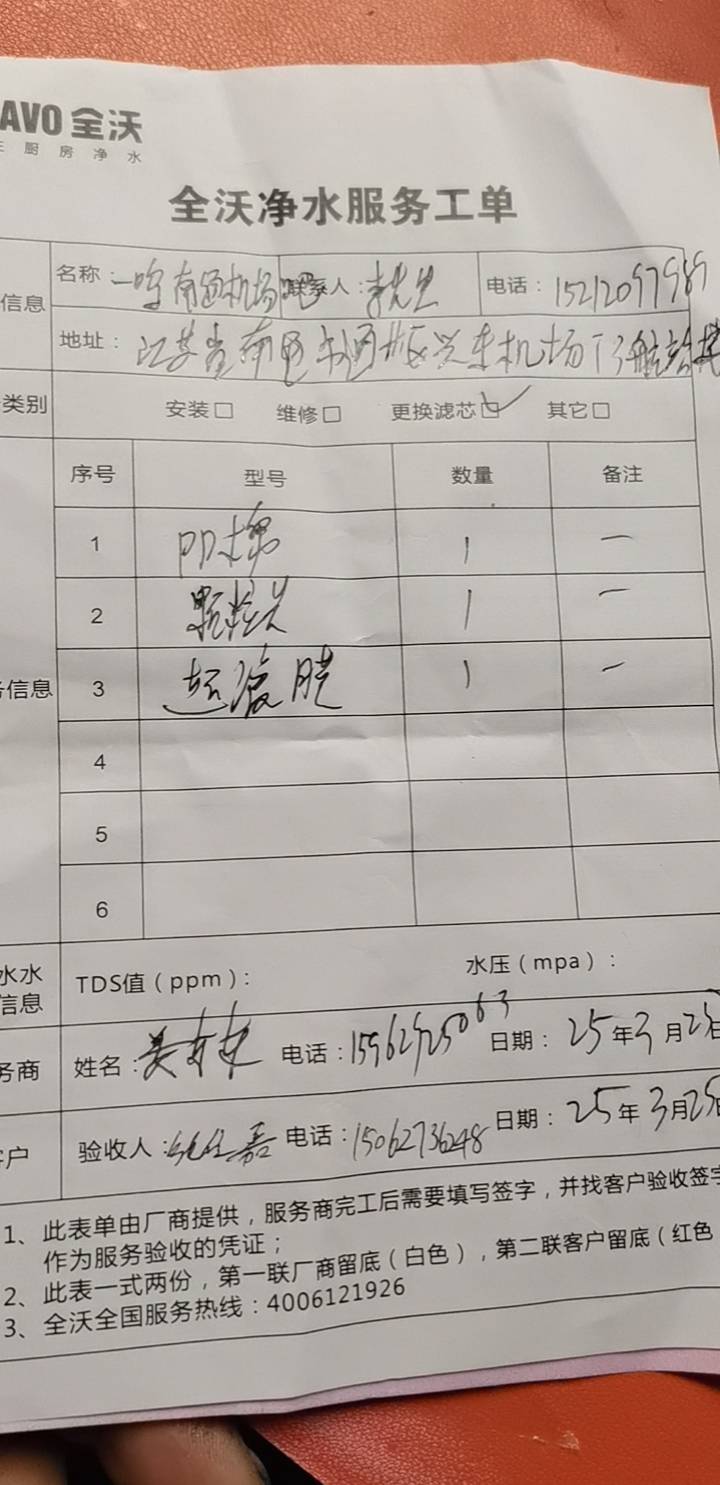 AVO 全沃
厨房净水
全沃净水服务工单
信息
名称：一鸣南通机场 联系人：李先生 电话：15212097989
地址：江苏省南通市通州区兴东机场T3航站楼
类别 安装□ 维修□ 更换滤芯☑ 其它□
序号 型号 数量 备注
1 PP棉 1 一
2 颗粒炭 1 一
信息 3 超滤膜 1 一
4
5
6
水水
信息
TDS值（ppm）： 水压（mpa）：
务商 姓名： 电话：15962925063 日期：25年3月25日
户 验收人： 电话：15062736248 日期：25年3月25日
1、此表单由厂商提供，服务商完工后需要填写签字，并找客户验收签字
作为服务验收的凭证；
2、此表一式两份，第一联厂商留底（白色），第二联客户留底（红色
3、全沃全国服务热线：4006121926